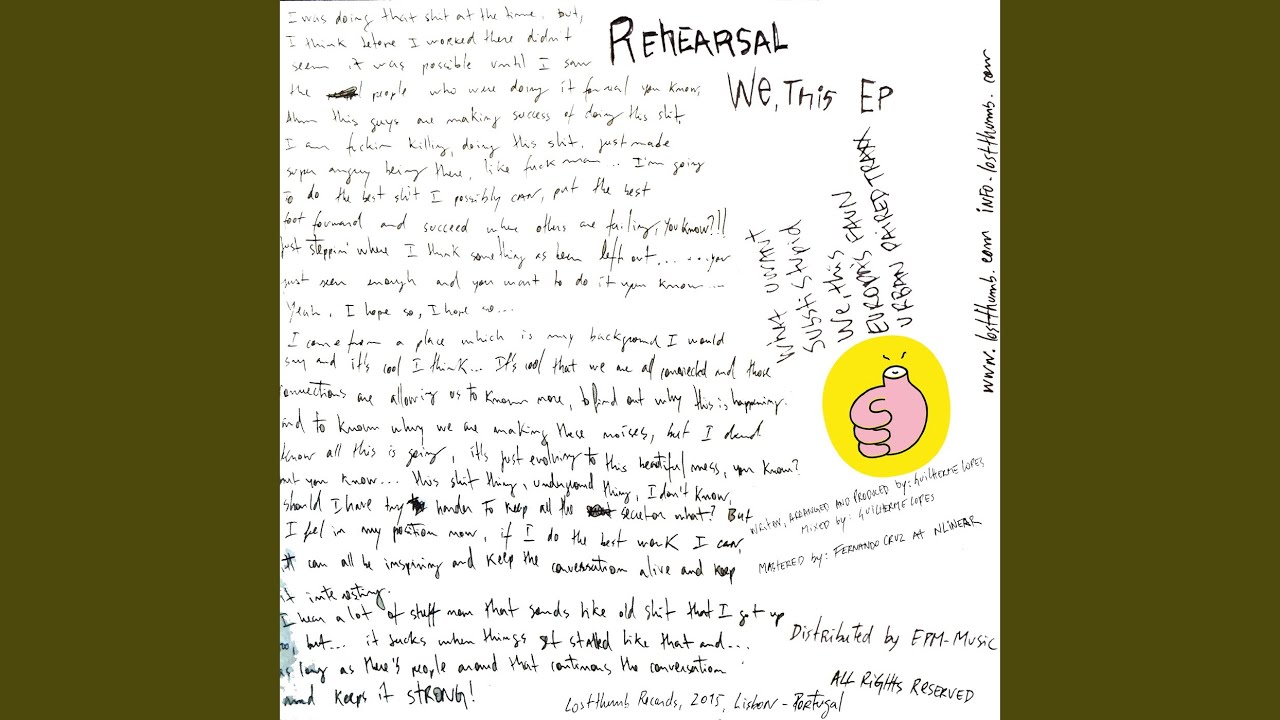 I was doing that shit at the time, but,
I think before I worked there didn't
seem it was possible until I saw
the people who were doing it for real you know,
this guys are making success of doing this shit,
I am fuckin killing, doing this shit, just made
super angry being there, like fuck man... I'm going
to do the best shit I possibly can, put the best
foot forward and succeed where others are failing, you know?!!
just steppin' where I think something as been left out... ...you
just seen enough and you want to do it you know...
Yeah, I hope so, I hope so...
I come from a place which is my background I would
say and it's cool I think... It's cool that we are all connected and those
connections are allowing us to know more, to find out why this is happening.
and to know why we are making these noises, but I dend
know all this is going, it's just evolving to this beautiful mess, you know?
but you know... this shit thing, underground thing, I don't know,
should I have try harder to keep all the secret or what? But
I feel in my position now, if I do the best work I can,
it can all be inspiring and keep the conversation alive and keep
it interesting.
I hear a lot of stuff man that sounds like old shit that I got up
to, but... it sucks when things get stalled like that and...
as long as there's people around that continues the conversation
and keeps it STRONG!
REHEARSAL
We, This EP
WHAT UWANT
SUBSTI STUPID
We, this
EUROPA'S FAUN
URBAN PAIRED TRAXX
www.lostthumb.com INFO.lostthumb.com
Writen, ARRANGED AND PRODUCED by: GUILHERME LOPES
MIXED by: GUILHERME LOPES
MASTERED by: FERNANDO CRUZ AT NLINEAR
Distributed by EPM-Music
ALL RIGHTS RESERVED
Lostthumb Records, 2015, Lisbon - Portugal